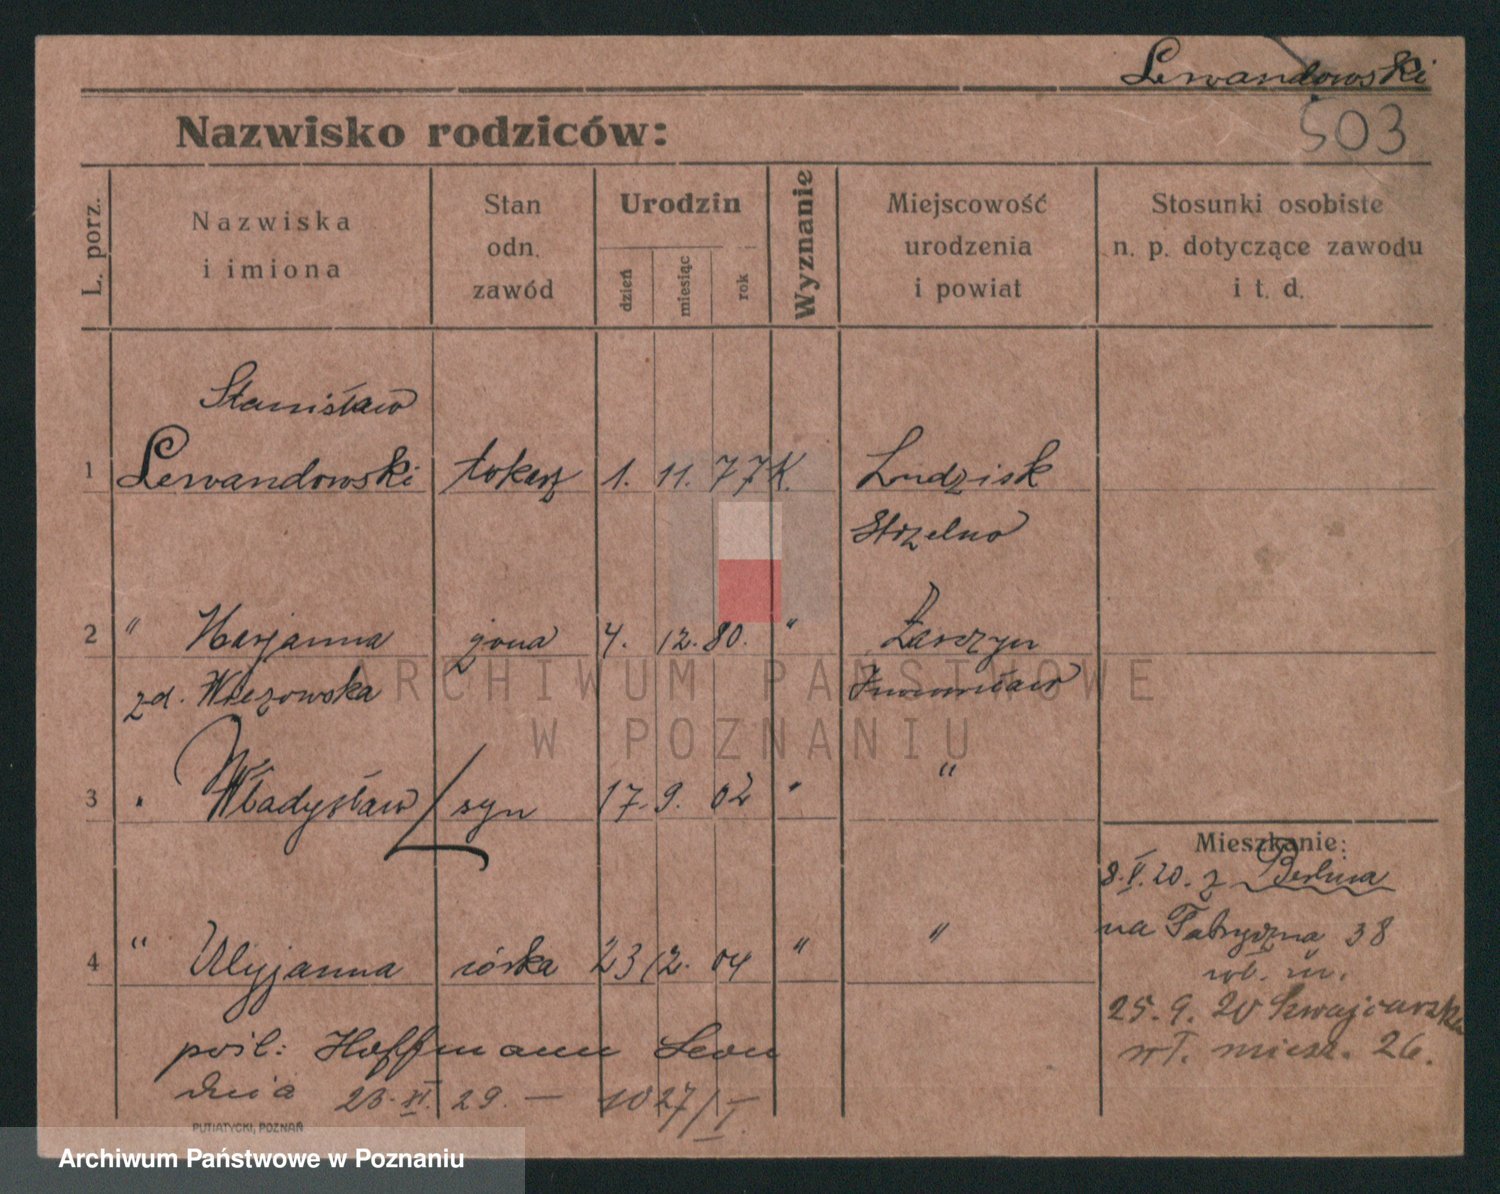 Lewandowski
503
Nazwisko rodziców:
L. porz.
Nazwiska
i imiona
Stan
odn.
zawód
Urodzin
dzień
miesiąc
rok
Wyznanie
Miejscowość
urodzenia
i powiat
Stosunki osobiste
n. p. dotyczące zawodu
i t. d.
Stanisław
1 Lewandowski tokarz 1. 11. 77 K. Ludzisk
Strzelno
2 " Marjanna żona 4. 12. 80. "
zd. Inowrocław
3 " Władysław syn 17. 9. 02 " "
Mieszkanie:
8.V.20. z Berlina
na Fabryczna 38
4 " Ulyjanna córka 23 12. 04 " "
25. 9. 20 Szwajcarska
wł. miesz. 26.
pośl: Hoffmann Leon
dnia 23. XI. 29. — 1027/I.
PUTIATYCKI, POZNAŃ
ARCHIWUM PAŃSTWOWE
W POZNANIU
Archiwum Państwowe w Poznaniu